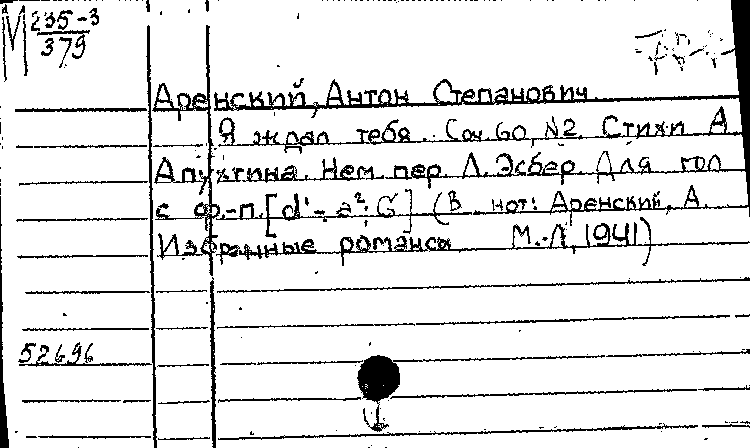 М 235-3
379
Аренский, Антон Степанович.
Я ждал тебя. Соч. 60, N2. Стихи А.
Апухтина. Нем. пер. Л. Эсбер. Для гол.
с ф.-п. [d'-a²; G] (В нот: Аренский, А.
Избранные романсы М.-Л., 1941)
52696